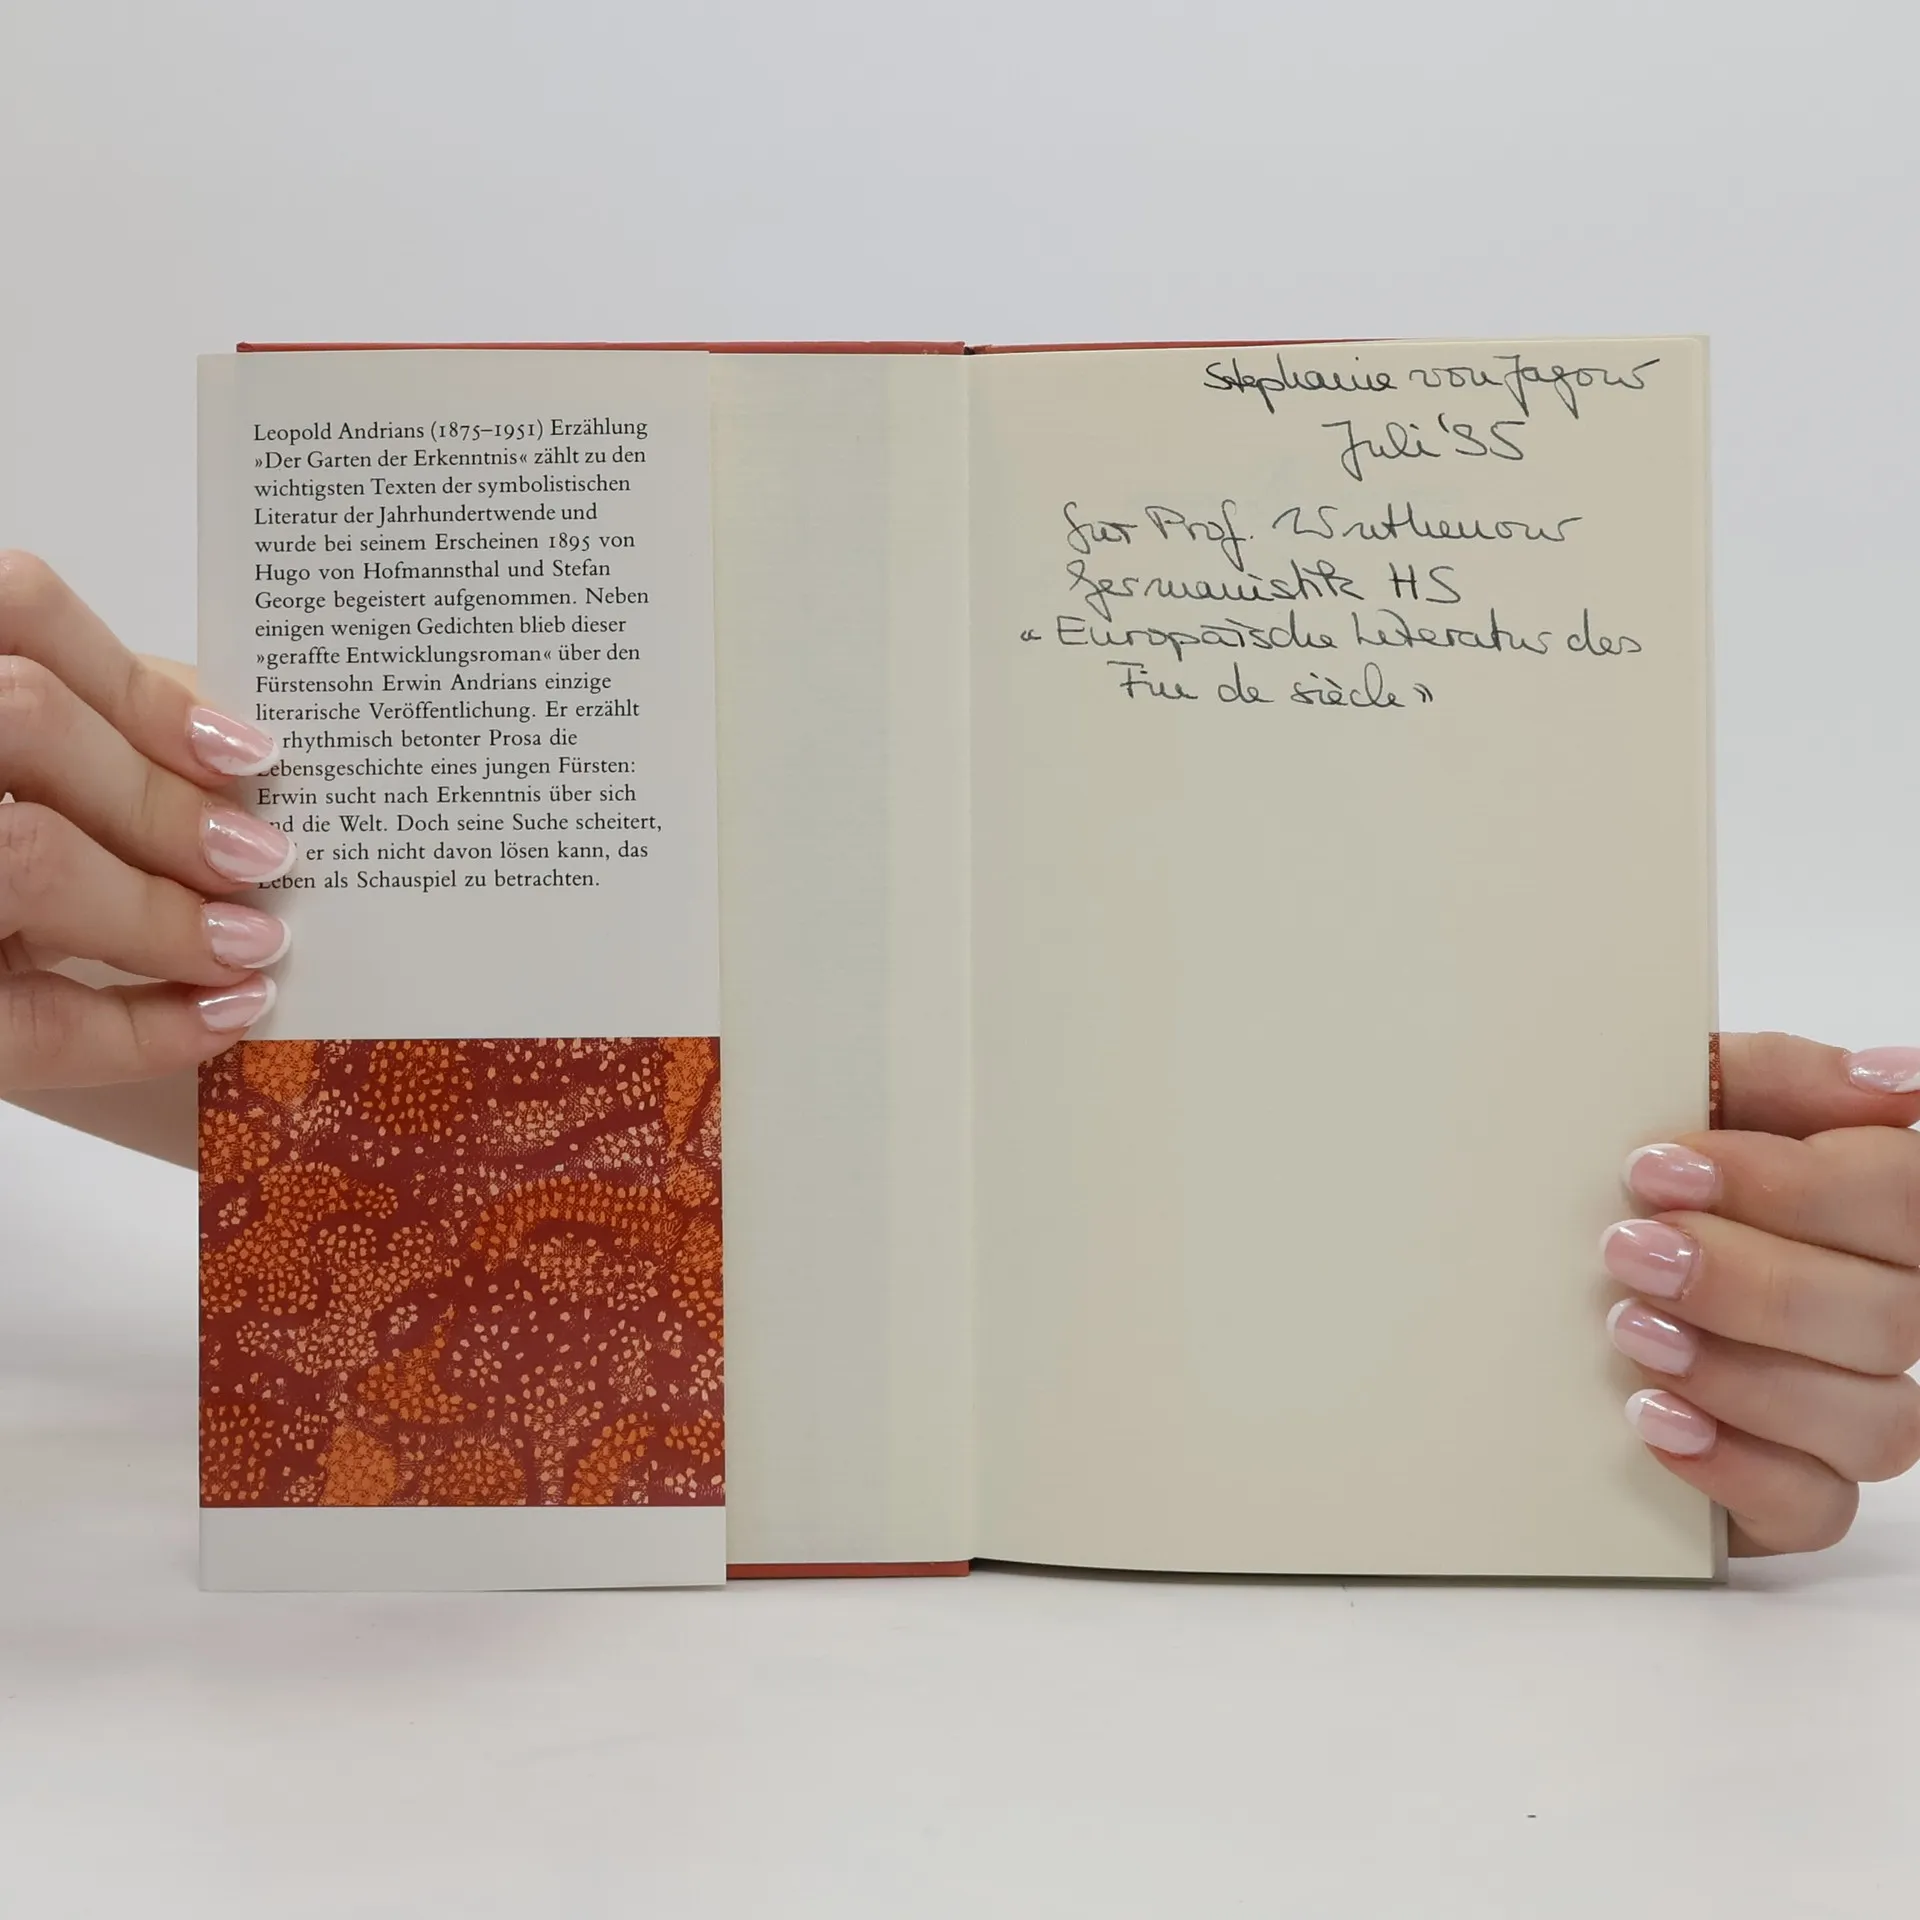 Leopold Andrians (1875–1951) Erzählung
»Der Garten der Erkenntnis« zählt zu den
wichtigsten Texten der symbolistischen
Literatur der Jahrhundertwende und
wurde bei seinem Erscheinen 1895 von
Hugo von Hofmannsthal und Stefan
George begeistert aufgenommen. Neben
einigen wenigen Gedichten blieb dieser
»geraffte Entwicklungsroman« über den
Fürstensohn Erwin Andrians einzige
literarische Veröffentlichung. Er erzählt
rhythmisch betonter Prosa die
Lebensgeschichte eines jungen Fürsten:
Erwin sucht nach Erkenntnis über sich
und die Welt. Doch seine Suche scheitert,
er sich nicht davon lösen kann, das
Leben als Schauspiel zu betrachten.
Stephanie von Jagow
Juli
für Prof. Wuthenow
Germanistik HS
“Europäische Literatur des
Fin de siècle”